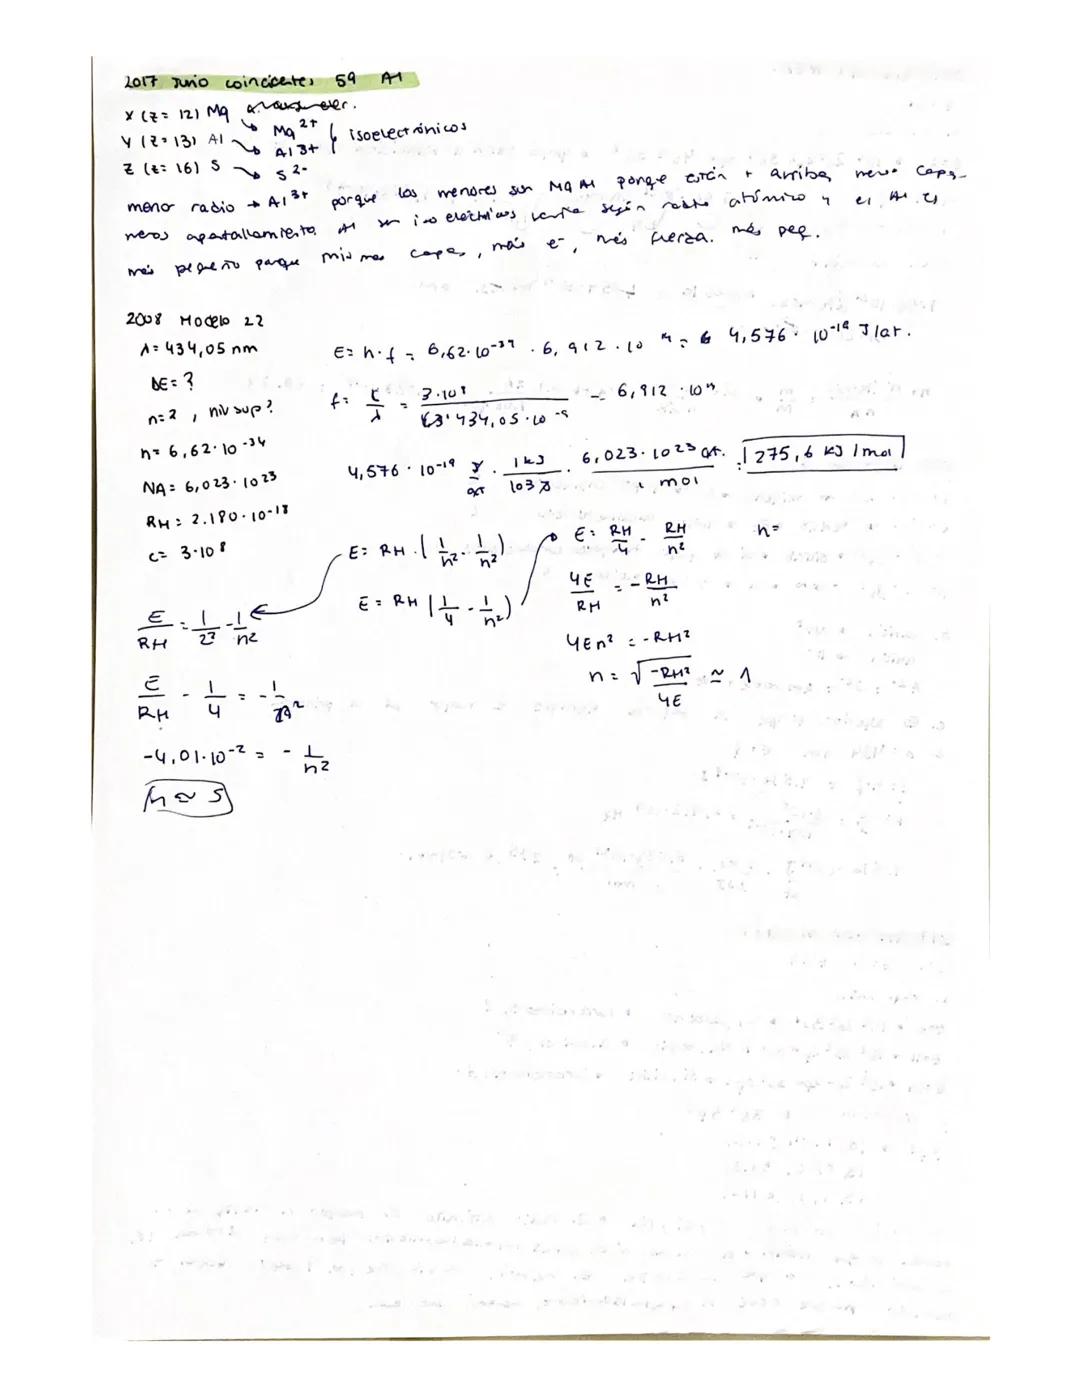 2017 Junio coincidentes 59 A1
X (Z = 12) Mg
Y (Z = 13) Al ↘ Mg2+ } isoelectrónicos
Z (Z= 16) S ↘ Al3+
↘ S2-
menor radio → Al3+ porque los menores son Mg Al porque están + arriba, menos capas
menos apantallamiento Al son isoelectrónicos varía según radio atómico y el Al es
más pequeño porque mismas capas, más e-, más fuerza. más peq.
2008 Modelo 22
λ= 434,05 nm
ΔE = ?
n=2, niv sup?
h= 6,62·10-34
NA= 6,023·1023
RH= 2.180·10-18
c= 3·108
E= h·f = 6,62·10-34 · 6,912·10 14 = 4,576·10-19 J/at.
f= c/λ = 3·108 / 434,05·10-9 = 6,912·1014
4,576·10-19 J/at · 1kJ/103J · 6,023·1023 at. / 1 mol = 275,6 kJ/mol
E= RH·(1/n2 - 1/n2)
E= RH (1/4 - 1/n2)
E= RH/4 - RH/n2
n=
4E/RH = -RH/n2
4En2 = -RH2
n= √-RH2/4E ≃ 1
E/RH = 1/22 - 1/n2
E/RH - 1/4 = -1/n2
-4,01·10-2 = - 1/n2
n ≃ 5